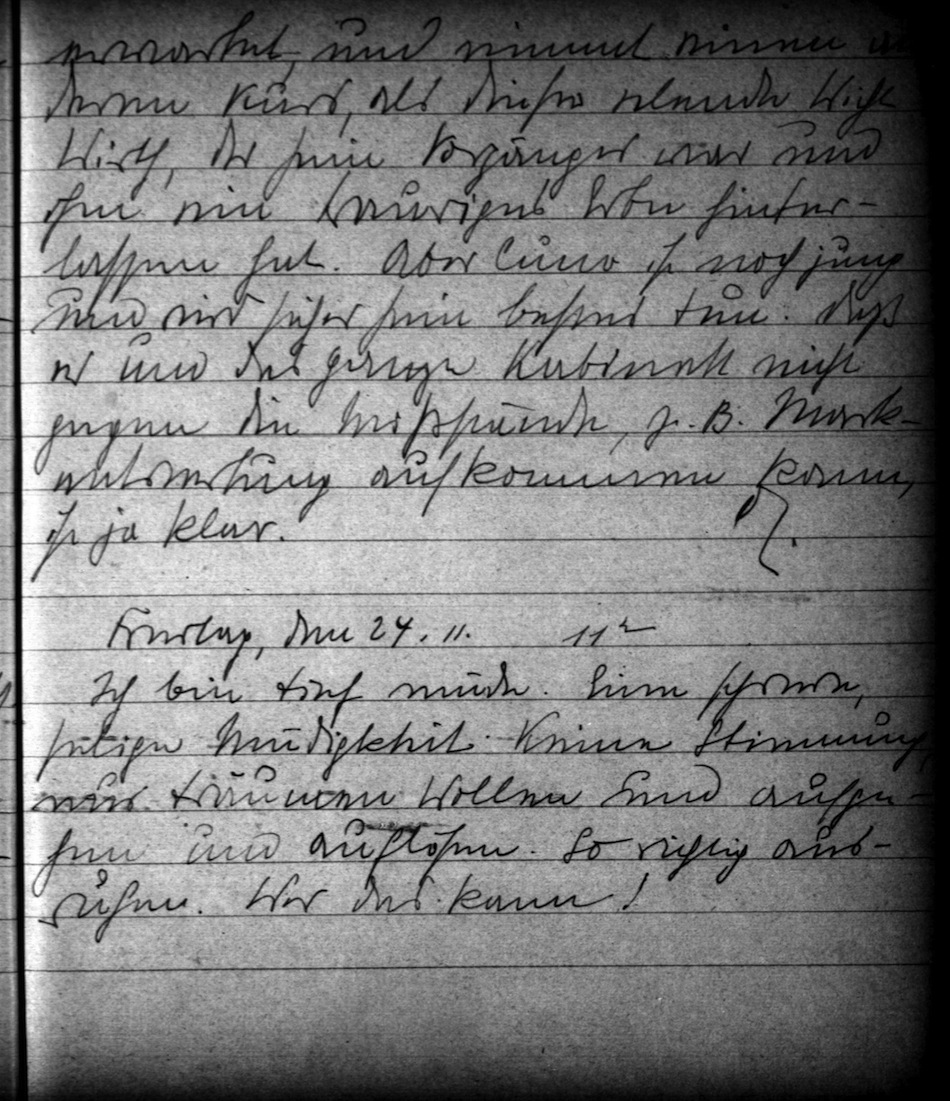 erwartet, und nimmt einen an
deren Kurs, als dieser elende Wicht
Wirth, der sein Vorgänger war und
ihm ein trauriges Erbe hinter-
lassen hat. Aber Cuno ist noch jung
und wird sicher sein bestes tun. Daß
er und das ganze Kabinett nicht
gegen die Mißstände, z. B. Mark-
entwertung aufkommen kann,
ist ja klar.
Freitag, den 24. 11. 11
Ich bin tief müde. Eine schwere,
selige Müdigkeit. Keine Stimmung,
nur träumen wollen und aufge-
hen und auflösen. So richtig aus-
ruhen. Wer das kann!